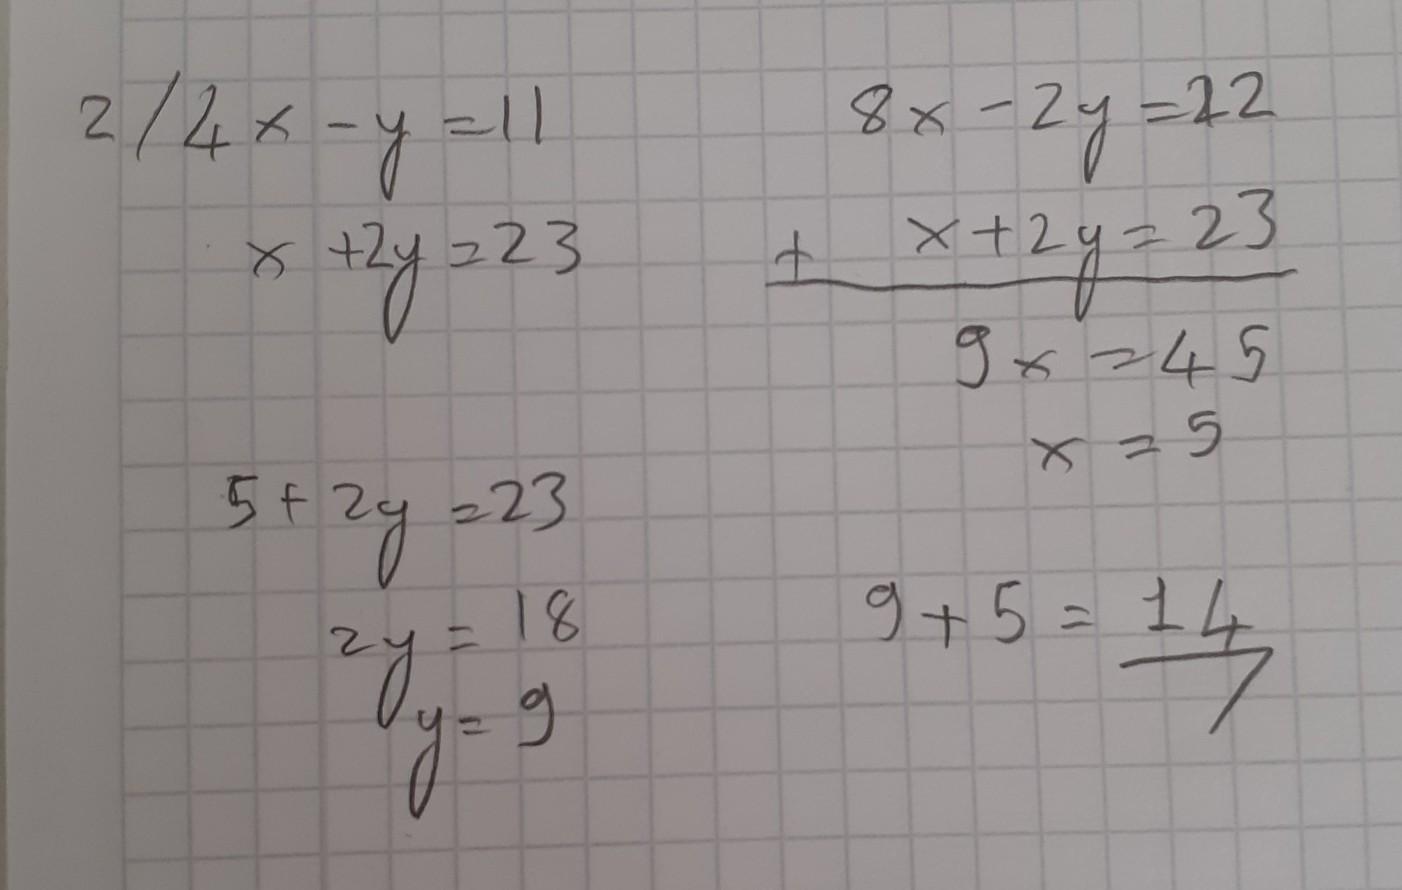 2/4x-y=11
x+2y=23
8x-2y=22
+ x+2y=23
9x=45
x=5
5+2y=23
2y=18
y=9
9+5=14